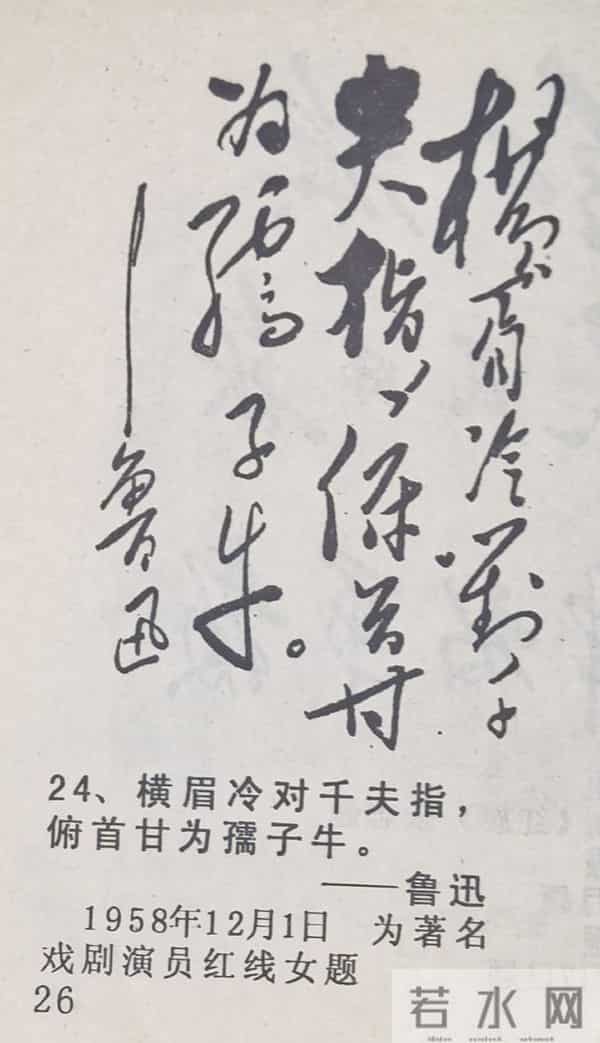 横眉冷對千
夫指，俯首甘
为孺子牛。
——鲁迅
24、横眉冷对千夫指，
俯首甘为孺子牛。
——鲁迅
1958年12月1日　为著名
戏剧演员红线女题
26
若水网